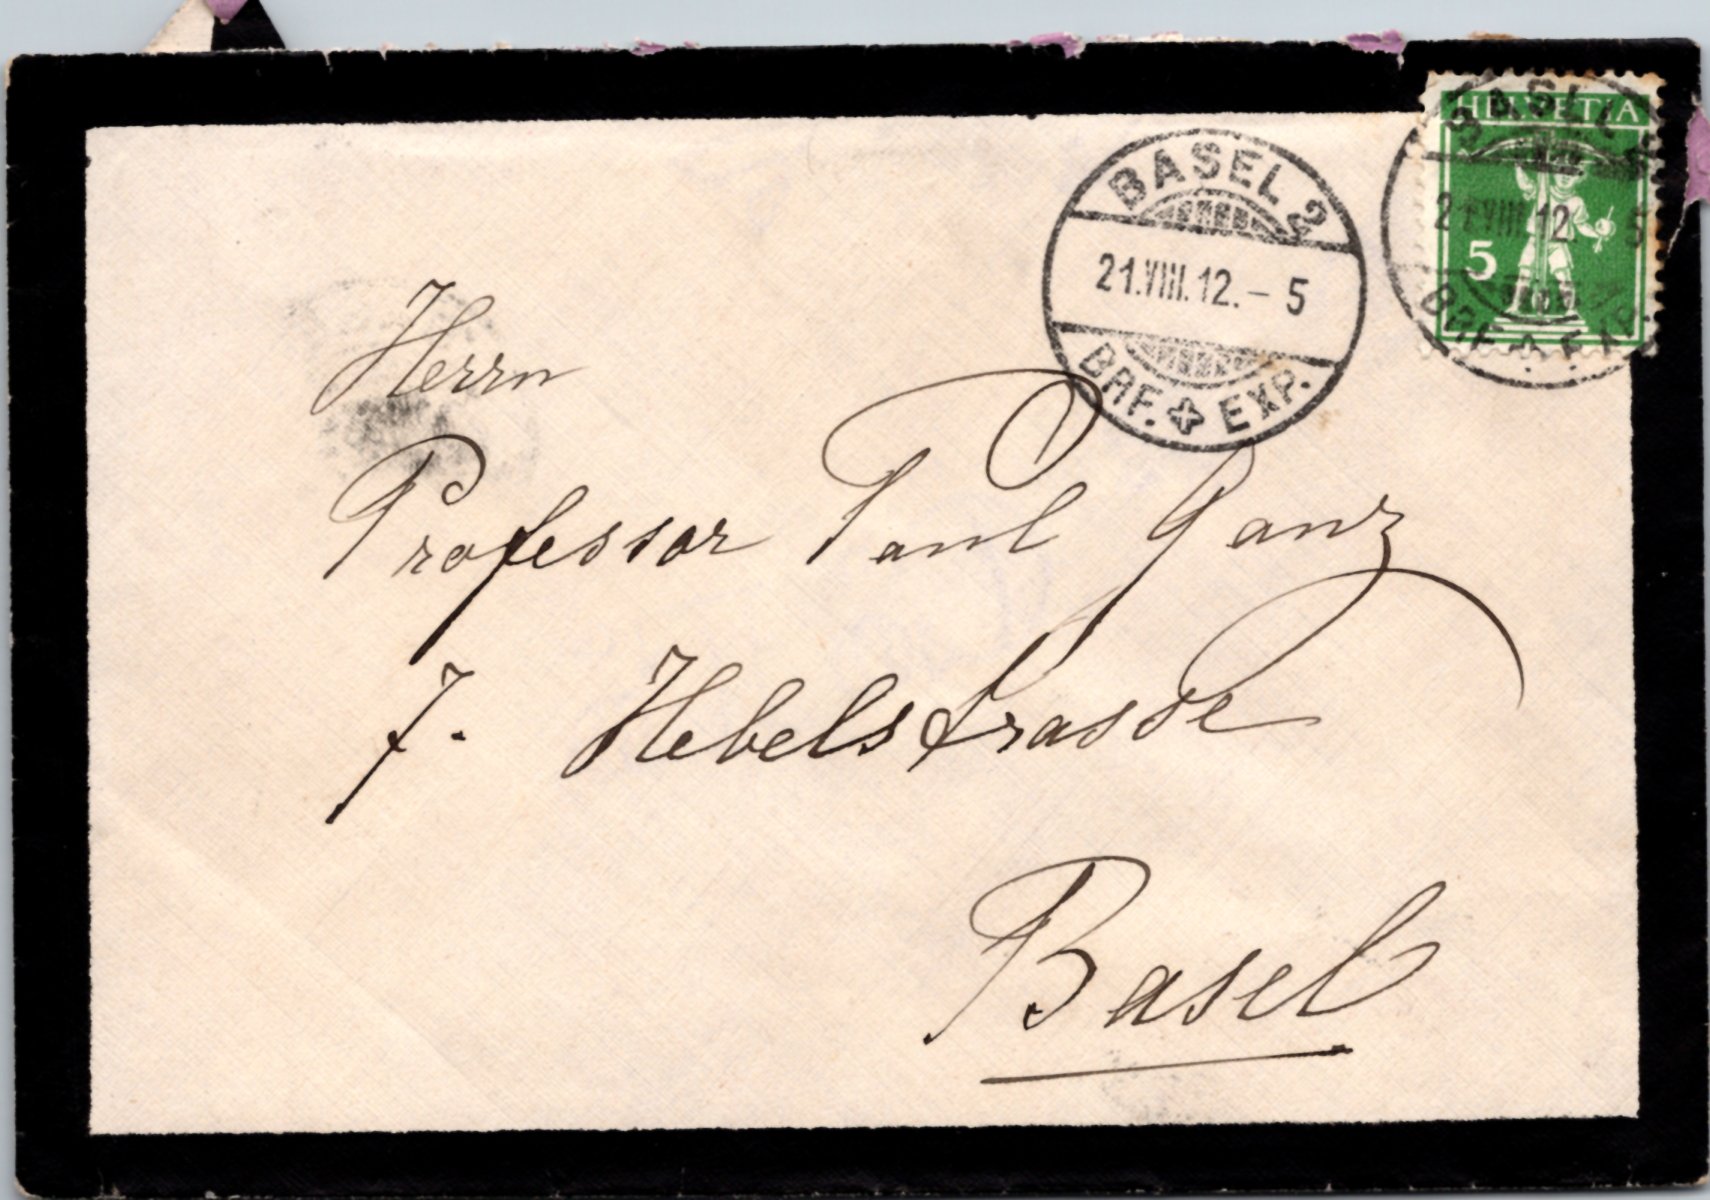 HELVETIA
5
BASEL 2
21.VIII.12.-5
BRF. EXP.
BASEL 2
21.VIII.12.-5
BRF. EXP.
Herrn
Professor Paul Ganz
7. Hebelstrasse
Basel